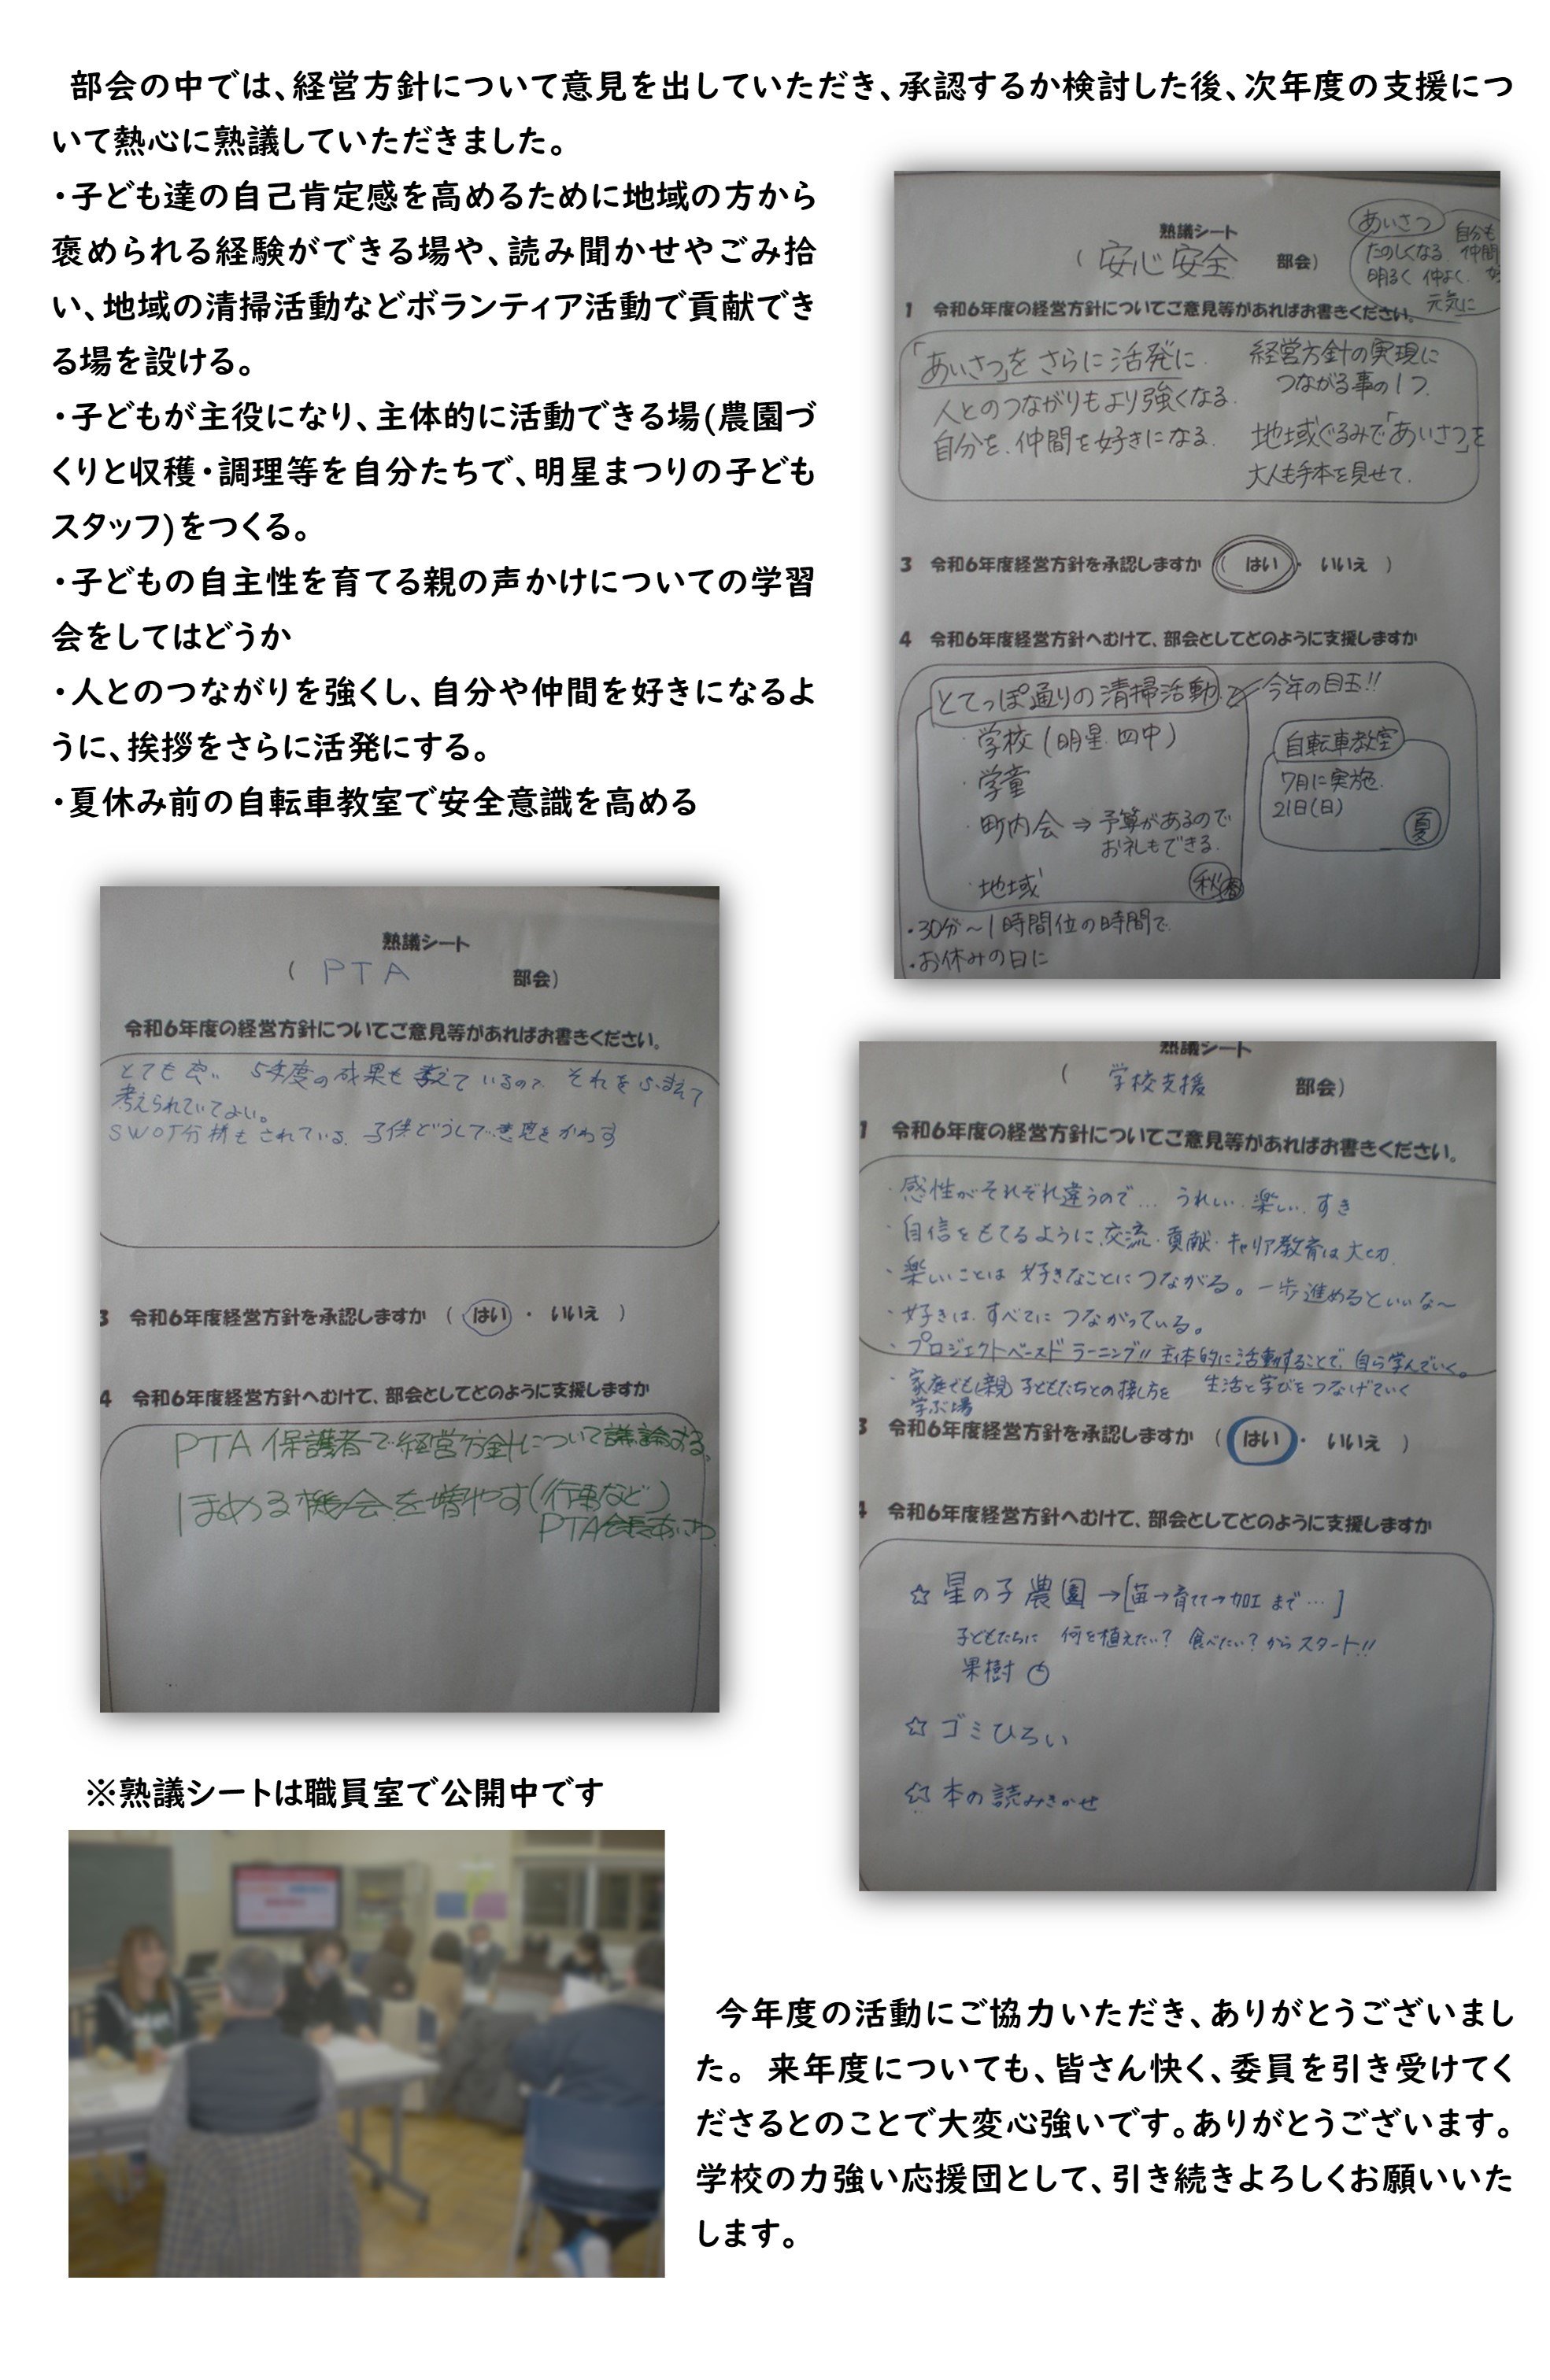 部会の中では、経営方針について意見を出していただき、承認するか検討した後、次年度の支援につ
いて熱心に熟議していただきました。
・子ども達の自己肯定感を高めるために地域の方から
褒められる経験ができる場や、読み聞かせやごみ拾
い、地域の清掃活動などボランティア活動で貢献でき
る場を設ける。
・子どもが主役になり、主体的に活動できる場(農園づ
くりと収穫・調理等を自分たちで、明星まつりの子ども
スタッフ)をつくる。
・子どもの自主性を育てる親の声かけについての学習
会をしてはどうか
・人とのつながりを強くし、自分や仲間を好きになるよ
うに、挨拶をさらに活発にする。
・夏休み前の自転車教室で安全意識を高める
熟議シート
(安心安全 部会)
あいさつ
たのしくなる
明るく 仲よく
元気に
自分も
仲間
1 令和6年度の経営方針についてご意見等があればお書きください。
「あいさつ」を さらに活発に.
人とのつながりもより強くなる.
自分を、仲間を好きになる.
経営方針の実現に
つながる事の1つ.
地域ぐるみで「あいさつ」を
大人も手本を見せて.
3 令和6年度経営方針を承認しますか ( はい ・ いいえ )
4 令和6年度経営方針へむけて、部会としてどのように支援しますか
とてっぽ通りの清掃活動 今年の目玉!!
・学校(明星.四中)
・学童
・町内会 ⇒ 予算があるので
お礼もできる.
・地域 秋
・30分～1時間位の時間で
・お休みの日に
自転車教室
7月に実施.
21日(日)
夏
熟議シート
( PTA 部会)
令和6年度の経営方針についてご意見等があればお書きください。
とても良い 5年度の成果も考えているので それをふまえて
考えられていてよい。
SWOT分析もされている. 子供どうしで意見をかわす
3 令和6年度経営方針を承認しますか ( はい ・ いいえ )
4 令和6年度経営方針へむけて、部会としてどのように支援しますか
PTA 保護者で経営方針について議論する
ほめる機会を増やす(行事など)
PTA会長あいさつ
熟議シート
( 学校支援 部会)
1 令和6年度の経営方針についてご意見等があればお書きください。
・感性がそれぞれ違うので… うれしい.楽しい.すき
・自信をもてるように.交流・貢献・キャリア教育は大切.
・楽しいことは 好きなことにつながる。一歩進めるといいな～
・好きは.すべてに つながっている。
・プロジェクトベースド ラーニング!! 主体的に活動することで、自ら学んでいく。
・家庭でも(親)子どもたちとの接し方を 生活と学びをつなげていく
学ぶ場
3 令和6年度経営方針を承認しますか ( はい ・ いいえ )
4 令和6年度経営方針へむけて、部会としてどのように支援しますか
☆ 星の子農園→[苗→育てて→加工 まで…]
子どもたちに 何を植えたい? 食べたい? からスタート!!
果樹
☆ ゴミひろい
☆ 本の読みきかせ
※熟議シートは職員室で公開中です
今年度の活動にご協力いただき、ありがとうございまし
た。 来年度についても、皆さん快く、委員を引き受けてく
ださるとのことで大変心強いです。ありがとうございます。
学校の力強い応援団として、引き続きよろしくお願いいた
します。